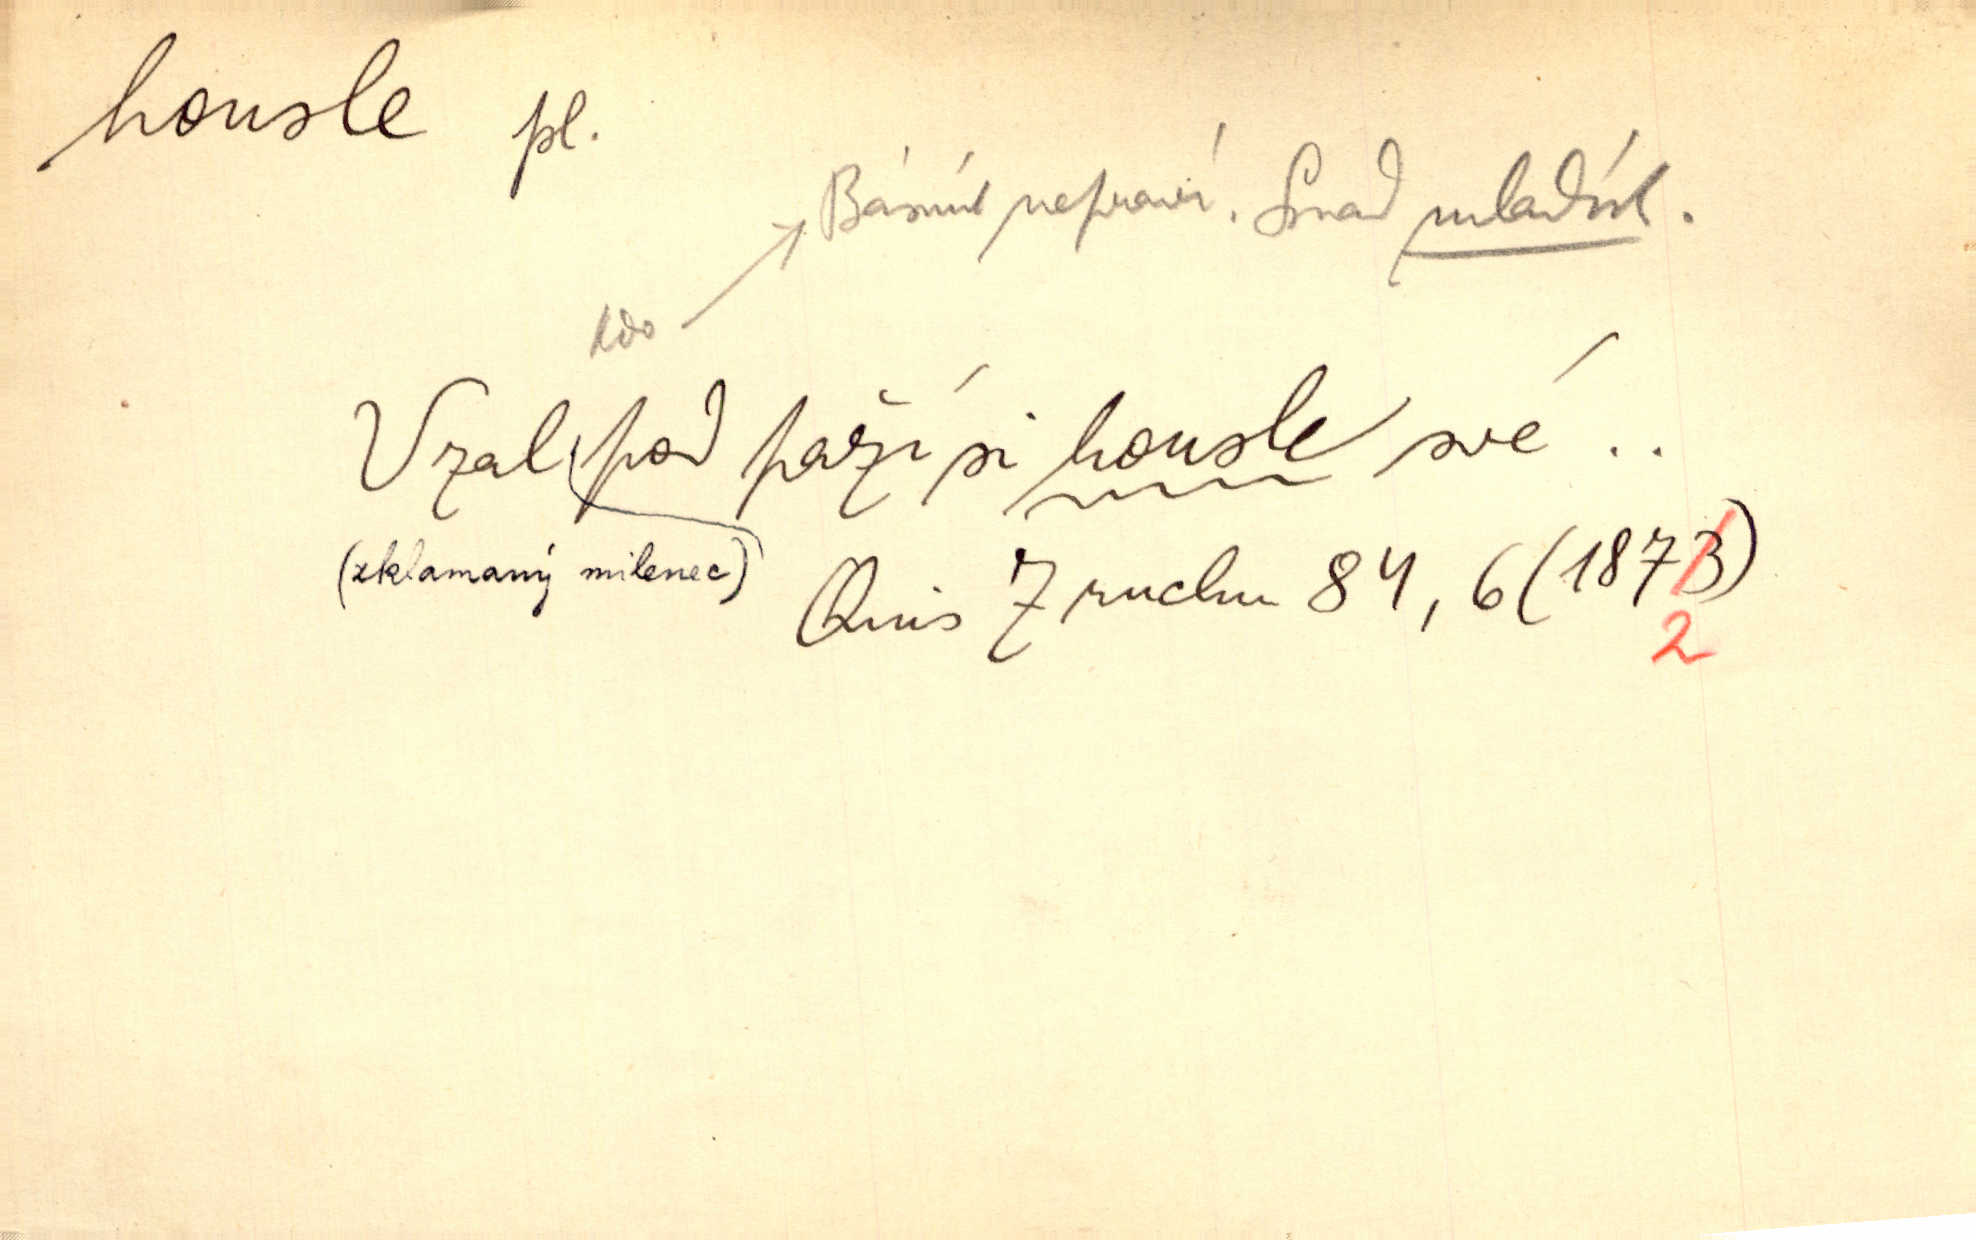 housle pl.
Básník nepraví. Snad mladík.
kdo
Vzal pod paží si housle své ..
(zklamaný milenec)
Quis Z ruchu 84, 6 (1873)
2